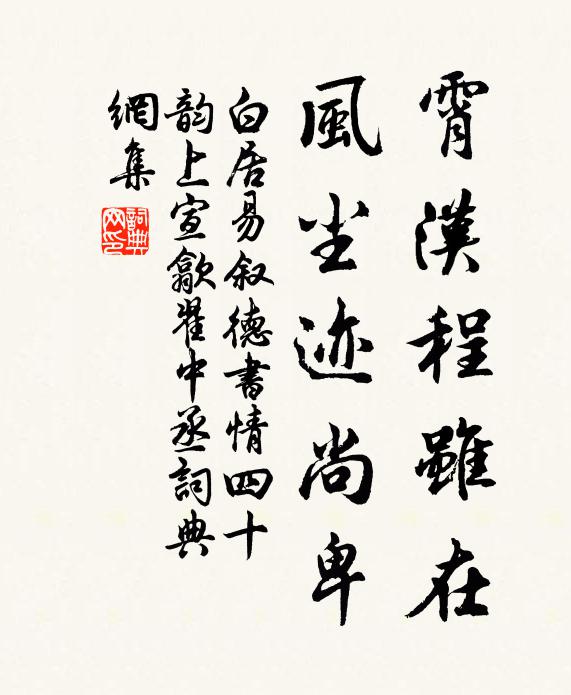 霄漢程雖在
風尘迹尚卑
白居易叙德書情四十
韵上宣歙翟中丞詞典
網集
詞典
网印